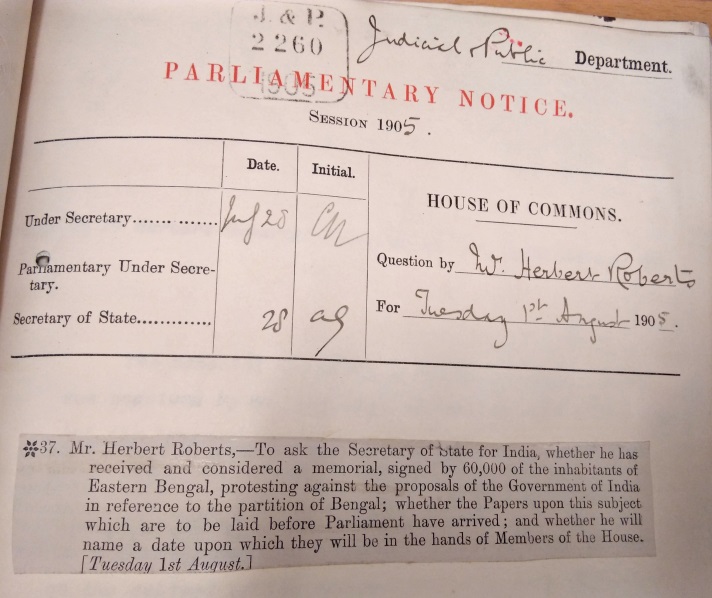 J. & P.
2260
1905
Judicial & Public Department.
PARLIAMENTARY NOTICE.
SESSION 1905.
Date. Initial.
Under Secretary............ July 28
Parliamentary Under Secre-
tary.
Secretary of State............. 28
HOUSE OF COMMONS.
Question by Mr. Herbert Roberts
For Tuesday 1st August 1905.
※37. Mr. Herbert Roberts,—To ask the Secretary of State for India, whether he has
received and considered a memorial, signed by 60,000 of the inhabitants of
Eastern Bengal, protesting against the proposals of the Government of India
in reference to the partition of Bengal; whether the Papers upon this subject
which are to be laid before Parliament have arrived; and whether he will
name a date upon which they will be in the hands of Members of the House.
[Tuesday 1st August.]